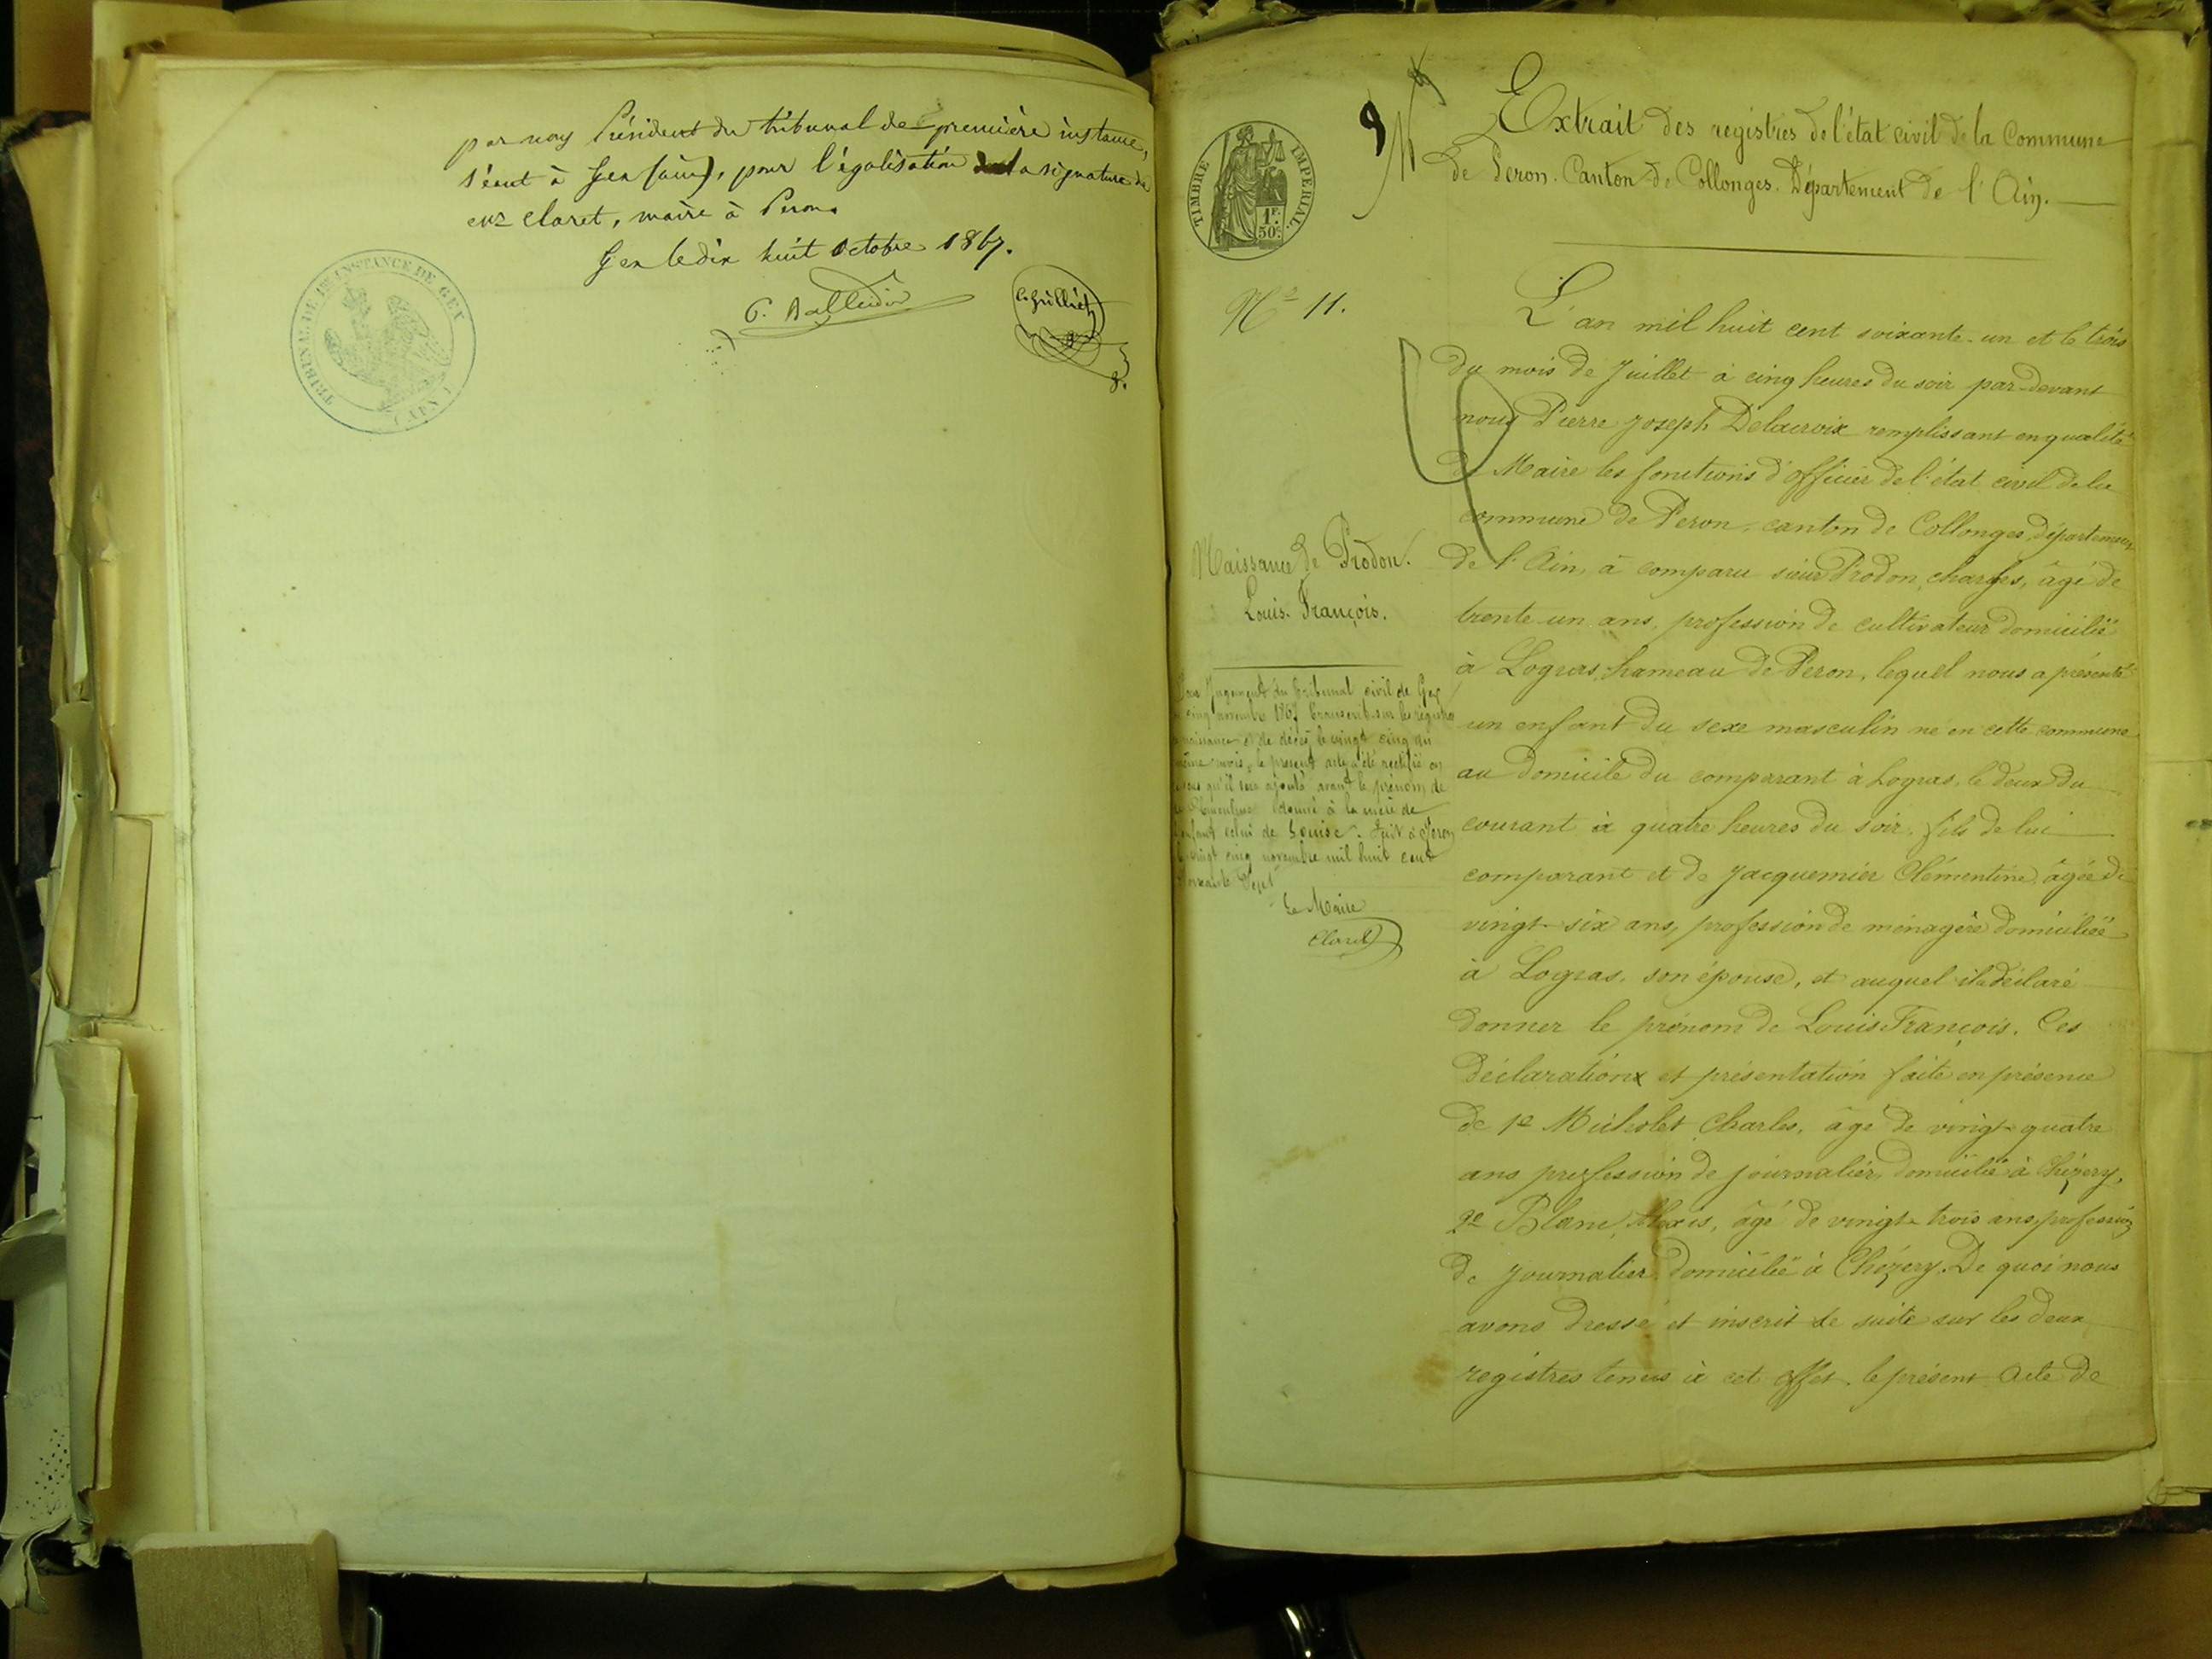 par nous Président du tribunal de première instance,
séant à Gex (ain), pour légalisation de la signature de
Claret, maire à Peron.
Gex le dix huit Octobre 1867.
TRIBUNAL DE 1RE INSTANCE DE GEX
(AIN)
9
TIMBRE IMPERIAL
1F.
50c.
Extrait des registres de l'état civil de la Commune
de Peron. Canton de Collonges. Département de l'Ain.
No 11.
Naissance de Prodon.
Louis. François.
Par Jugement du tribunal civil de Gex
cinq novembre 1867 transcrit sur les registres
naissance et de décès le vingt cinq du
même mois, le présent acte a été rectifié en
sens qu'il sera ajouté avant le prénom de
Clémentine donné à la mère de
l'enfant celui de Louise. Fait à Peron
le vingt cinq novembre mil huit cent
soixante sept
Le Maire
Claret
L'an mil huit cent soixante-un et le trois
du mois de Juillet à cinq heures du soir par-devant
nous Pierre Joseph Delacroix remplissant en qualité
de Maire les fonctions d'officier de l'état civil de la
commune de Peron, canton de Collonges, département
de l'Ain, à comparu sieur Prodon, charles, âgé de
trente-un ans, profession de cultivateur domicilié
à Logras, hameau de Peron, lequel nous a présenté
un enfant du sexe masculin né en cette commune
au domicile du comparant à Logras, le deux du
courant à quatre heures du soir, fils de lui
comparant et de Jacquemier Clémentine, âgée de
vingt-six ans, profession de ménagère domiciliée
à Logras, son épouse, et auquel il a déclaré
donner le prénom de Louis François. Ces
déclaration et présentation faite en présence
de 1e Micholet Charles, âgé de vingt-quatre
ans profession de journalier, domicilié à Chézery,
2e Blanc, Alexis, âgé de vingt-trois ans, profession
de journalier domicilié à Chézery. De quoi nous
avons dressé et inscrit de suite sur les deux
registres tenus à cet effet, le présent Acte de